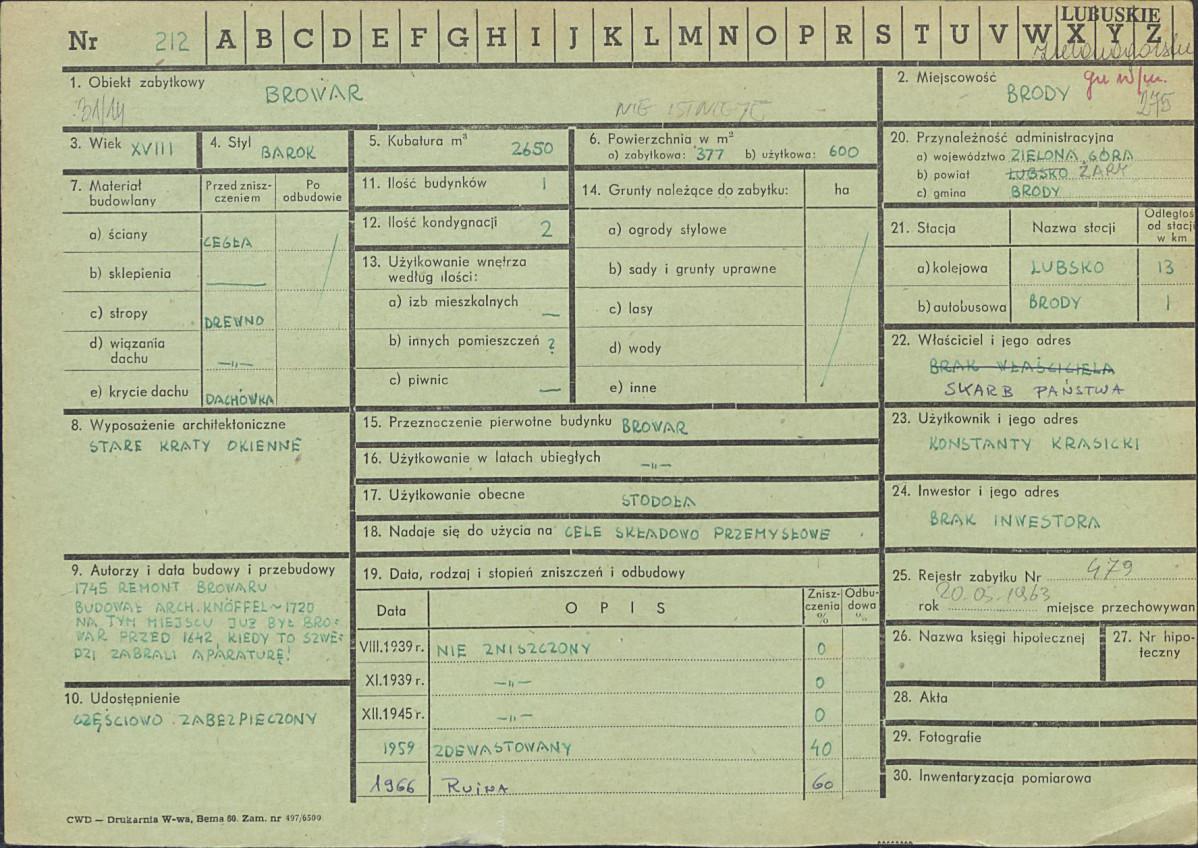 Nr 212 A B C D E F G H I J K L M N O P R S T U V W X Y Z
LUBUSKIE
1. Obiekt zabytkowy BROWAR
31/14 NIE ISTNIEJE
2. Miejscowość
BRODY
275
3. Wiek XVIII
4. Styl BAROK
5. Kubatura m³ 2650
6. Powierzchnia w m²
a) zabytkowa: 377 b) użytkowa: 600
7. Materiał budowlany
Przed zniszczeniem
Po odbudowie
a) ściany CEGŁA
b) sklepienia —
c) stropy DREWNO
d) wiązania dachu —„—
e) krycie dachu DACHÓWKA
8. Wyposażenie architektoniczne
STARE KRATY OKIENNE
9. Autorzy i data budowy i przebudowy
1745 REMONT BROWARU
BUDOWAŁ ARCH. KNÖFFEL ~ 1720
NA TYM MIEJSCU JUŻ BYŁ BRO=
WAR PRZED 1642, KIEDY TO SZWE=
DZI ZABRALI APARATURĘ!
10. Udostępnienie
CZĘŚCIOWO ZABEZPIECZONY
11. Ilość budynków 1
12. Ilość kondygnacji 2
13. Użytkowanie wnętrza
według ilości:
a) izb mieszkalnych —
b) innych pomieszczeń ?
c) piwnic —
14. Grunty należące do zabytku: ha
a) ogrody stylowe
b) sady i grunty uprawne
c) lasy
d) wody
e) inne
15. Przeznoczenie pierwotne budynku BROWAR
16. Użytkowanie w latach ubiegłych —„—
17. Użytkowanie obecne STODOŁA
18. Nadaje się do użycia na CELE SKŁADOWO PRZEMYSŁOWE
19. Data, rodzaj i stopień zniszczeń i odbudowy
Data OPIS Zniszczenia % Odbudowa %
VIII.1939 r. NIE ZNISZCZONY 0
XI.1939 r. —„— 0
XII.1945 r. —„— 0
1959 ZDEWASTOWANY 40
1966 RUINA 60
20. Przynależność administracyjna
a) województwo ZIELONA GÓRA
b) powiat LUBSKO ŻARY
c) gmina BRODY
21. Stacja Nazwa stacji
Odległoś
od stacji
w km
a) kolejowa LUBSKO 13
b) autobusowa BRODY 1
22. Właściciel i jego adres
BRAK WŁAŚCICIELA
SKARB PAŃSTWA
23. Użytkownik i jego adres
KONSTANTY KRASICKI
24. Inwestor i jego adres
BRAK INWESTORA
25. Rejestr zabytku Nr 479
20.05.1963
rok miejsce przechowywan
26. Nazwa księgi hipotecznej
27. Nr hipo-
teczny
28. Akta
29. Fotografie
30. Inwentaryzacja pomiarowa
CWD — Drukarnia W-wa, Bema 60. Zam. nr 497/6500